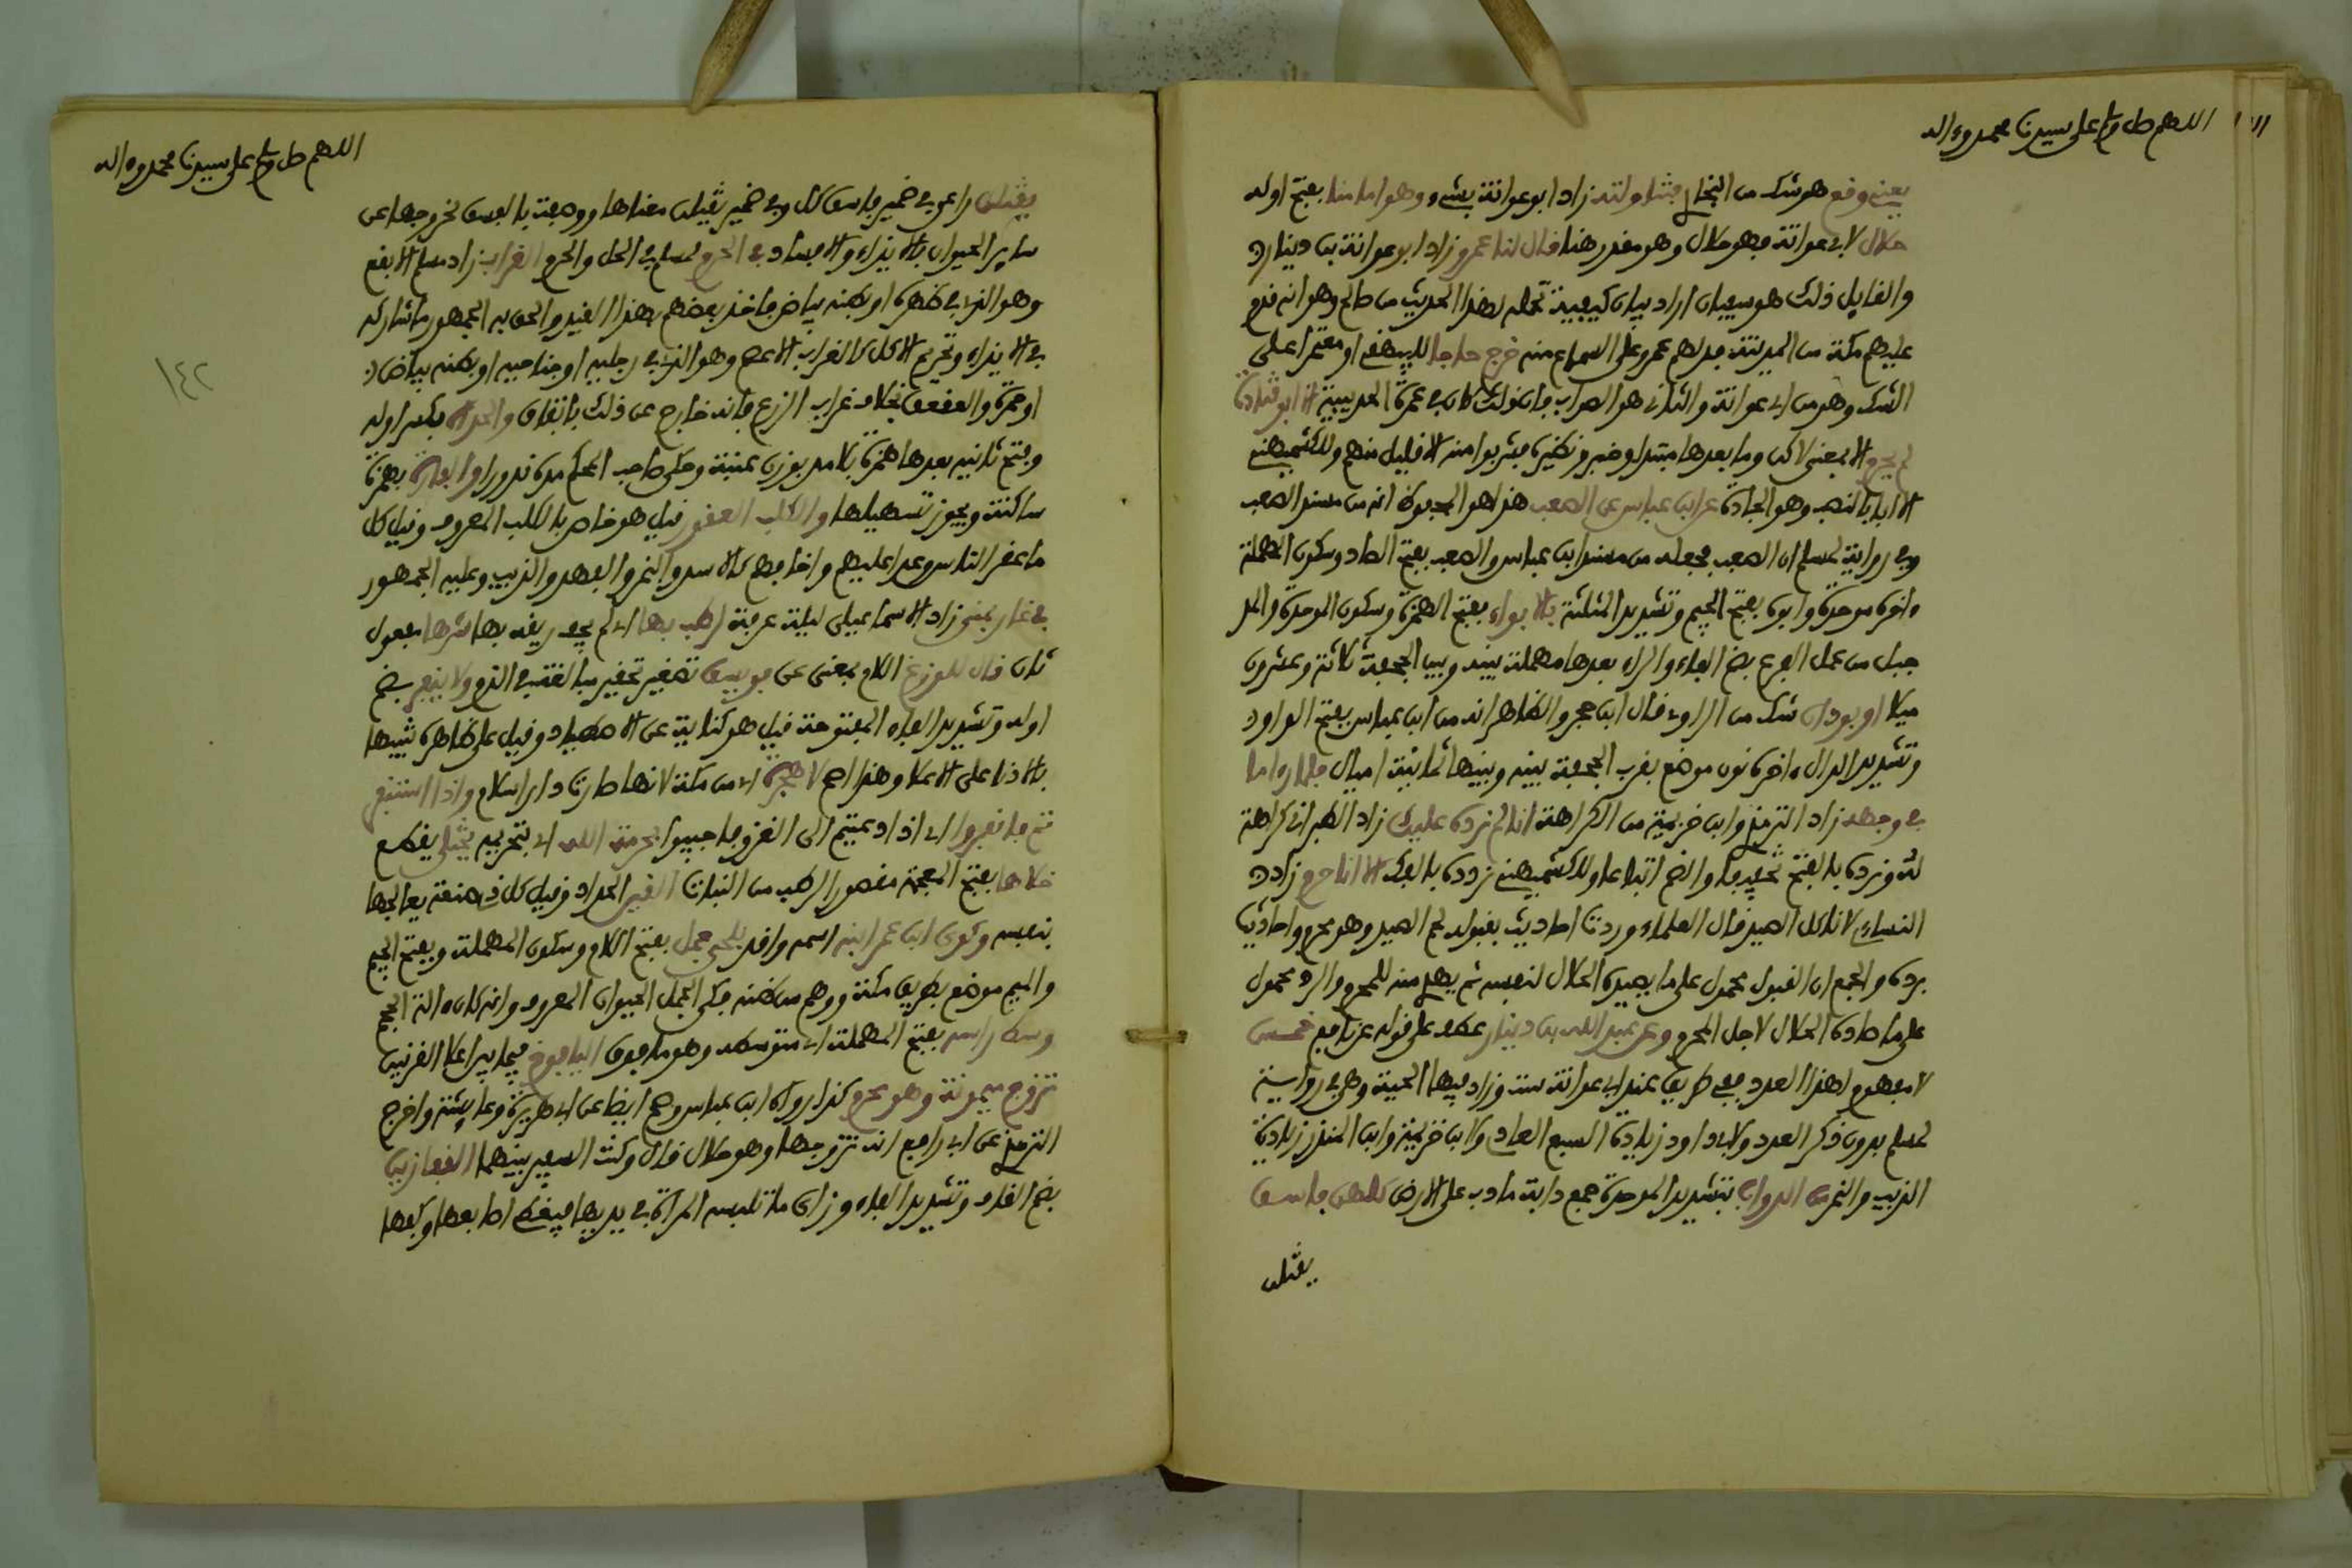 اللهم صل وسلم على سيدنا محمد وءاله
يعني وقع هو شك من البخاري فتناولته زاد ابو عوانة بشيء وهو اما منا بفتح اوله
حلال لابي عوانة فهو حلال وهو مقدر هنا قال لنا عمرو زاد ابو عوانة بن دينار
والقايل ذلك هو سفيان اراد بيان كيفية تحمله لهذا الحديث من صالح وهو انه قدم
عليهم مكة من المدينة فدلهم عمرو على السماع منه خرج حاجا للبيهقي او معتمرا على
الشك وهو من ابي عوانة والثاني هو الصواب فان ذلك كان في عمرة الحديبية الا ابو قتادة
لم يحرم الا بمعنى لاكن وما بعدها مبتدا وخبر ونظيره فشربوا منه الا قليل منهم وللكشميهني
الا ابا بالنصب وهو الجادة عن ابن عباس عن الصعب هذا هو المحفوظ انه من مسند الصعب
وفي رواية لمسلم ان الصعب فجعله من مسند ابن عباس والصعب بفتح الصاد وسكون المهملة
ءاخره موحدة وابوه بفتح الجيم وتشديد المثلثة بالابواء بفتح الهمزة وسكون الموحدة والمد
جبل من عمل الفرع بضم الفاء والراء بعدها مهملة بينه وبين الجحفة ثلاثة وعشرون
ميلا او بودان شك من الراوي قال ابن حجر والظاهر انه من ابن عباس بفتح الواو
وتشديد الدال ءاخره نون موضع بقرب الجحفة بينه وبينها ثمانية اميال فلما راى ما
في وجهه زاد الترمذي وابن خزيمة من الكراهة انا لم نرده عليك زاد الطبراني كراهة
له ونرده بالفتح تخفيفا والضم اتباعا وللكشميهني نردده بالفك الا انا حرم زاد
النساءي لا ناكل الصيد قال العلماء وردت احاديث بقبوله لحم الصيد وهو محرم واحاديث
برده والجمع ان القبول محمول على ما يصيده الحلال لنفسه ثم يهدي منه للمحرم والرد محمول
على ما صاده الحلال لاجل المحرم وعن عبد الله بن دينار عطف على قوله عن نافع خمس
لا مفهوم لهذا العدد ففي طريق عند ابي عوانة ست وزاد فيها الحية وهي في رواية
لمسلم بدون ذكر العدد ولابي داود زيادة السبع العادي ولابن خزيمة وابن المنذر زيادة
الذيب والنمر من الدواب بتشديد الموحدة جمع دابة ما دب على الارض كلهن فاسق
يقتلن
اللهم صل وسلم على سيدنا محمد وءاله
١٤٢
يقتلن راعى في ضمير فاسق كل وفي ضمير يقتلن معناها ووصفت بالفسق لخروجها عن
ساير الحيوان بالايذاء والافساد في الحرم لمسلم في الحل والحرم الغراب زاد مسلم الابقع
وهو الذي في ظهره او بطنه بياض فاخذ بعضهم بهذا القيد والحق به الجمهور ما شاركه
في الايذاء وتحريم الاكل كالغراب الاعصم وهو الذي في رجليه او جناحيه او بطنه بياض
او حمرة والعقعق بخلاف غراب الزرع فانه خارج عن ذلك باتفاق والحداة بكسر اوله
وفتح ثانيه بعدها همزة بلا مد بوزن عنبة وحكى صاحب المحكم مده ندورا والفارة بهمزة
ساكنة ويجوز تسهيلها والكلب العقور قيل هو خاص بالكلب المعروف وقيل كل
ما عقر الناس وعدا عليهم واخافهم كالاسد والنمر والفهد والذيب وعليه الجمهور
في غار بمنى زاد الاسماعيلي ليلة عرفة لرطب بها اي لم يجف ريقه بها شرها مفعول
ثان قال للوزغ اللام بمعنى عن فويسق تصغير تحقير مبالغة في الذم ولا ينفر بضم
اوله وتشديد الفاء المفتوحة قيل هو كناية عن الاصطياد وقيل على ظاهره تنبيها
بالادنى على الاعلا وهذا اصح لا هجرة اي من مكة لانها صارت دار اسلام واذا استنفرتم
فانفروا اي اذا دعيتم الى الغزو فاجيبوا بحرمة الله اي بتحريمه يختلى يقطع
خلاها بفتح المعجمة مقصورا الرطب من النبات القين الحداد وقيل كل ذي صنعة يعالجها
بنفسه وكوى ابن عمر ابنه اسمه واقد بلحي جمل بفتح اللام وسكون المهملة وبفتح الجيم
والميم موضع بطريق مكة ووهم من ظنه فكي الجمل الحيوان المعروف وانه كان ءالة الحجم
وسط راسه بفتح المهملة اي متوسطه وهو ما فوق اليافوخ فيما بين اعلا القرنين
تزوج ميمونة وهو محرم كذا رواه ابن عباس وصح ايضا عن ابي هريرة وعايشة واخرج
الترمذي عن ابي رافع انه تزوجها وهو حلال قال وكنت السفير بينهما القفازين
بضم القاف وتشديد الفاء وزاي ما تلبسه المراة في يديها فيغطي اصابعها وكفها